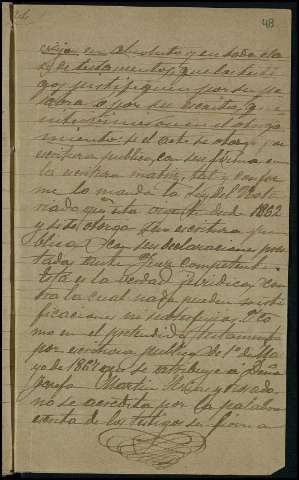 48
en absoluto y en toda cla
se de testamentos, que los testi
gos justifiquen por su pa
labra o por su escrito, que
intervinieron en el otorga
miento: si el acto se otorga por
escritura publica, con su firma en
la escritura matriz, tal y confor
me lo manda la Ley del Not
riado que esta vigente desde 1862
y si se otorga sin escritura pu
blica con sus declaraciones pres
tadas ante Juez competente.
Esta es la verdad juridica, con
tra la cual nada pueden justi
ficaciones ni subterfugios. Y co
mo en el pretendido testamento
por escritura publica de 1º de Ma
yo de 1867 que se atribuye a Doña
Josefa Martin
no se acredita por la palabra
escrita de los testigos su firma